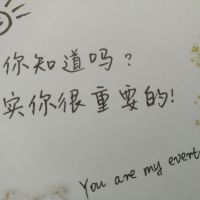 你知道吗?
实你很重要的!
You are my evert